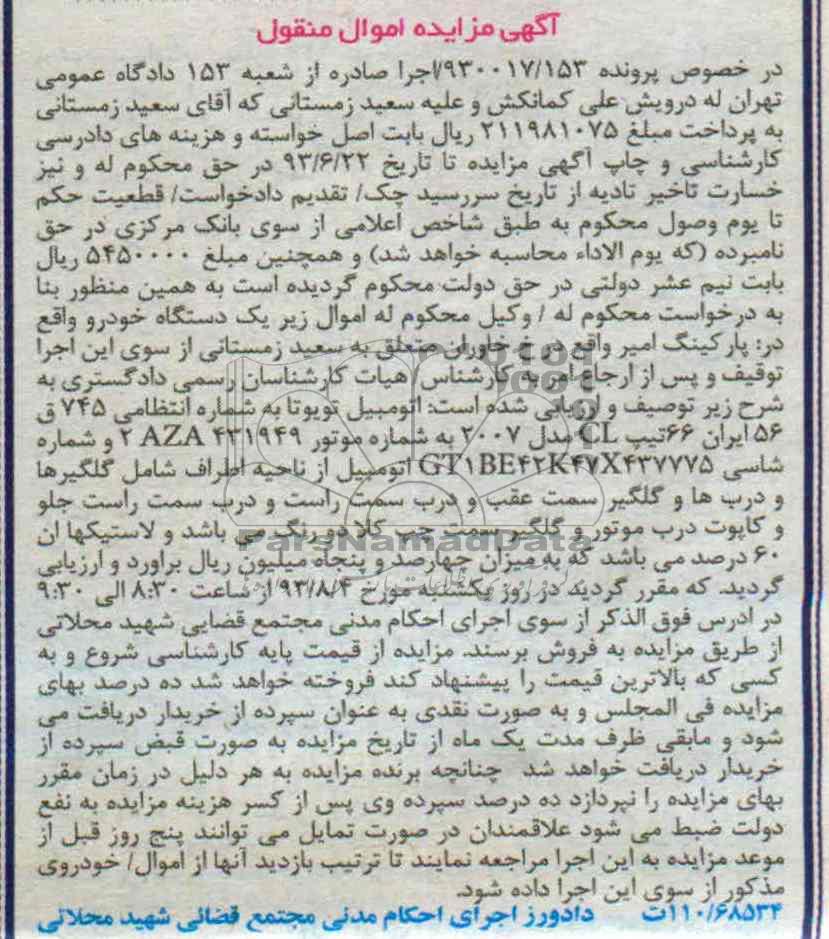 آگهی مزایده اموال منقول
در خصوص پرونده ۹۳۰۰۱۷/۱۵۳/اجرا صادره از شعبه ۱۵۳ دادگاه عمومی
تهران له درویش علی کمانکش و علیه سعید زمستانی که آقای سعید زمستانی
به پرداخت مبلغ ۲۱۱۹۸۱۰۷۵ ریال بابت اصل خواسته و هزینه های دادرسی
کارشناسی و چاپ آگهی مزایده تا تاریخ ۹۳/۶/۲۲ در حق محکوم له و نیز
خسارت تاخیر تادیه از تاریخ سررسید چک/ تقدیم دادخواست/ قطعیت حکم
تا یوم وصول محکوم به طبق شاخص اعلامی از سوی بانک مرکزی در حق
نامبرده (که یوم الاداء محاسبه خواهد شد) و همچنین مبلغ ۵۴۵۰۰۰۰ ریال
بابت نیم عشر دولتی در حق دولت محکوم گردیده است به همین منظور بنا
به درخواست محکوم له / وکیل محکوم له اموال زیر یک دستگاه خودرو واقع
در: پارکینگ امیر واقع در خ خاوران متعلق به سعید زمستانی از سوی این اجرا
توقیف و پس از ارجاع امر به کارشناس اهیات کارشناسان رسمی دادگستری به
شرح زیر توصیف و ارزیابی شده است: اتومبیل تویوتا به شماره انتظامی ۷۴۵ ق
۵۶ ایران ۶۶تیپ CL مدل ۲۰۰۷ به شماره موتور ۲ AZA ۴۳۱۹۴۹ و شماره
شاسی GT۱BE۴۲K۴۷X۴۳۷۷۷۵ اتومبیل از ناحیه اطراف شامل گلگیرها
و درب ها و گلگیر سمت عقب و درب سمت راست و درب سمت راست جلو
و کاپوت درب موتور و گلگیر سمت چپ کلا دو رنگ می باشد و لاستیکها ان
۶۰ درصد می باشد که به میزان چهارصد و پنجاه میلیون ریال براورد و ارزیابی
گردید. که مقرر گردید در روز یکشنبه مورخ ۹۳/۸/۴ از ساعت ۸:۳۰ الی ۹:۳۰
در ادرس فوق الذکر از سوی اجرای احکام مدنی مجتمع قضایی شهید محلاتی
از طریق مزایده به فروش برسند. مزایده از قیمت پایه کارشناسی شروع و به
کسی که بالاترین قیمت را پیشنهاد کند فروخته خواهد شد ده درصد بهای
مزایده فی المجلس و به صورت نقدی به عنوان سپرده از خریدار دریافت می
شود و مابقی ظرف مدت یک ماه از تاریخ مزایده به صورت قبض سپرده از
خریدار دریافت خواهد شد چنانچه برنده مزایده به هر دلیل در زمان مقرر
بهای مزایده را نپردازد ده درصد سپرده وی پس از کسر هزینه مزایده به نفع
دولت ضبط می شود علاقمندان در صورت تمایل می توانند پنج روز قبل از
موعد مزایده به این اجرا مراجعه نمایند تا ترتیب بازدید آنها از اموال/ خودروی
مذکور از سوی این اجرا داده شود.
۱۱۰/۶۸۵۳۴ت دادورز اجرای احکام مدنی مجتمع قضائی شهید محلاتی
ParsNamadData